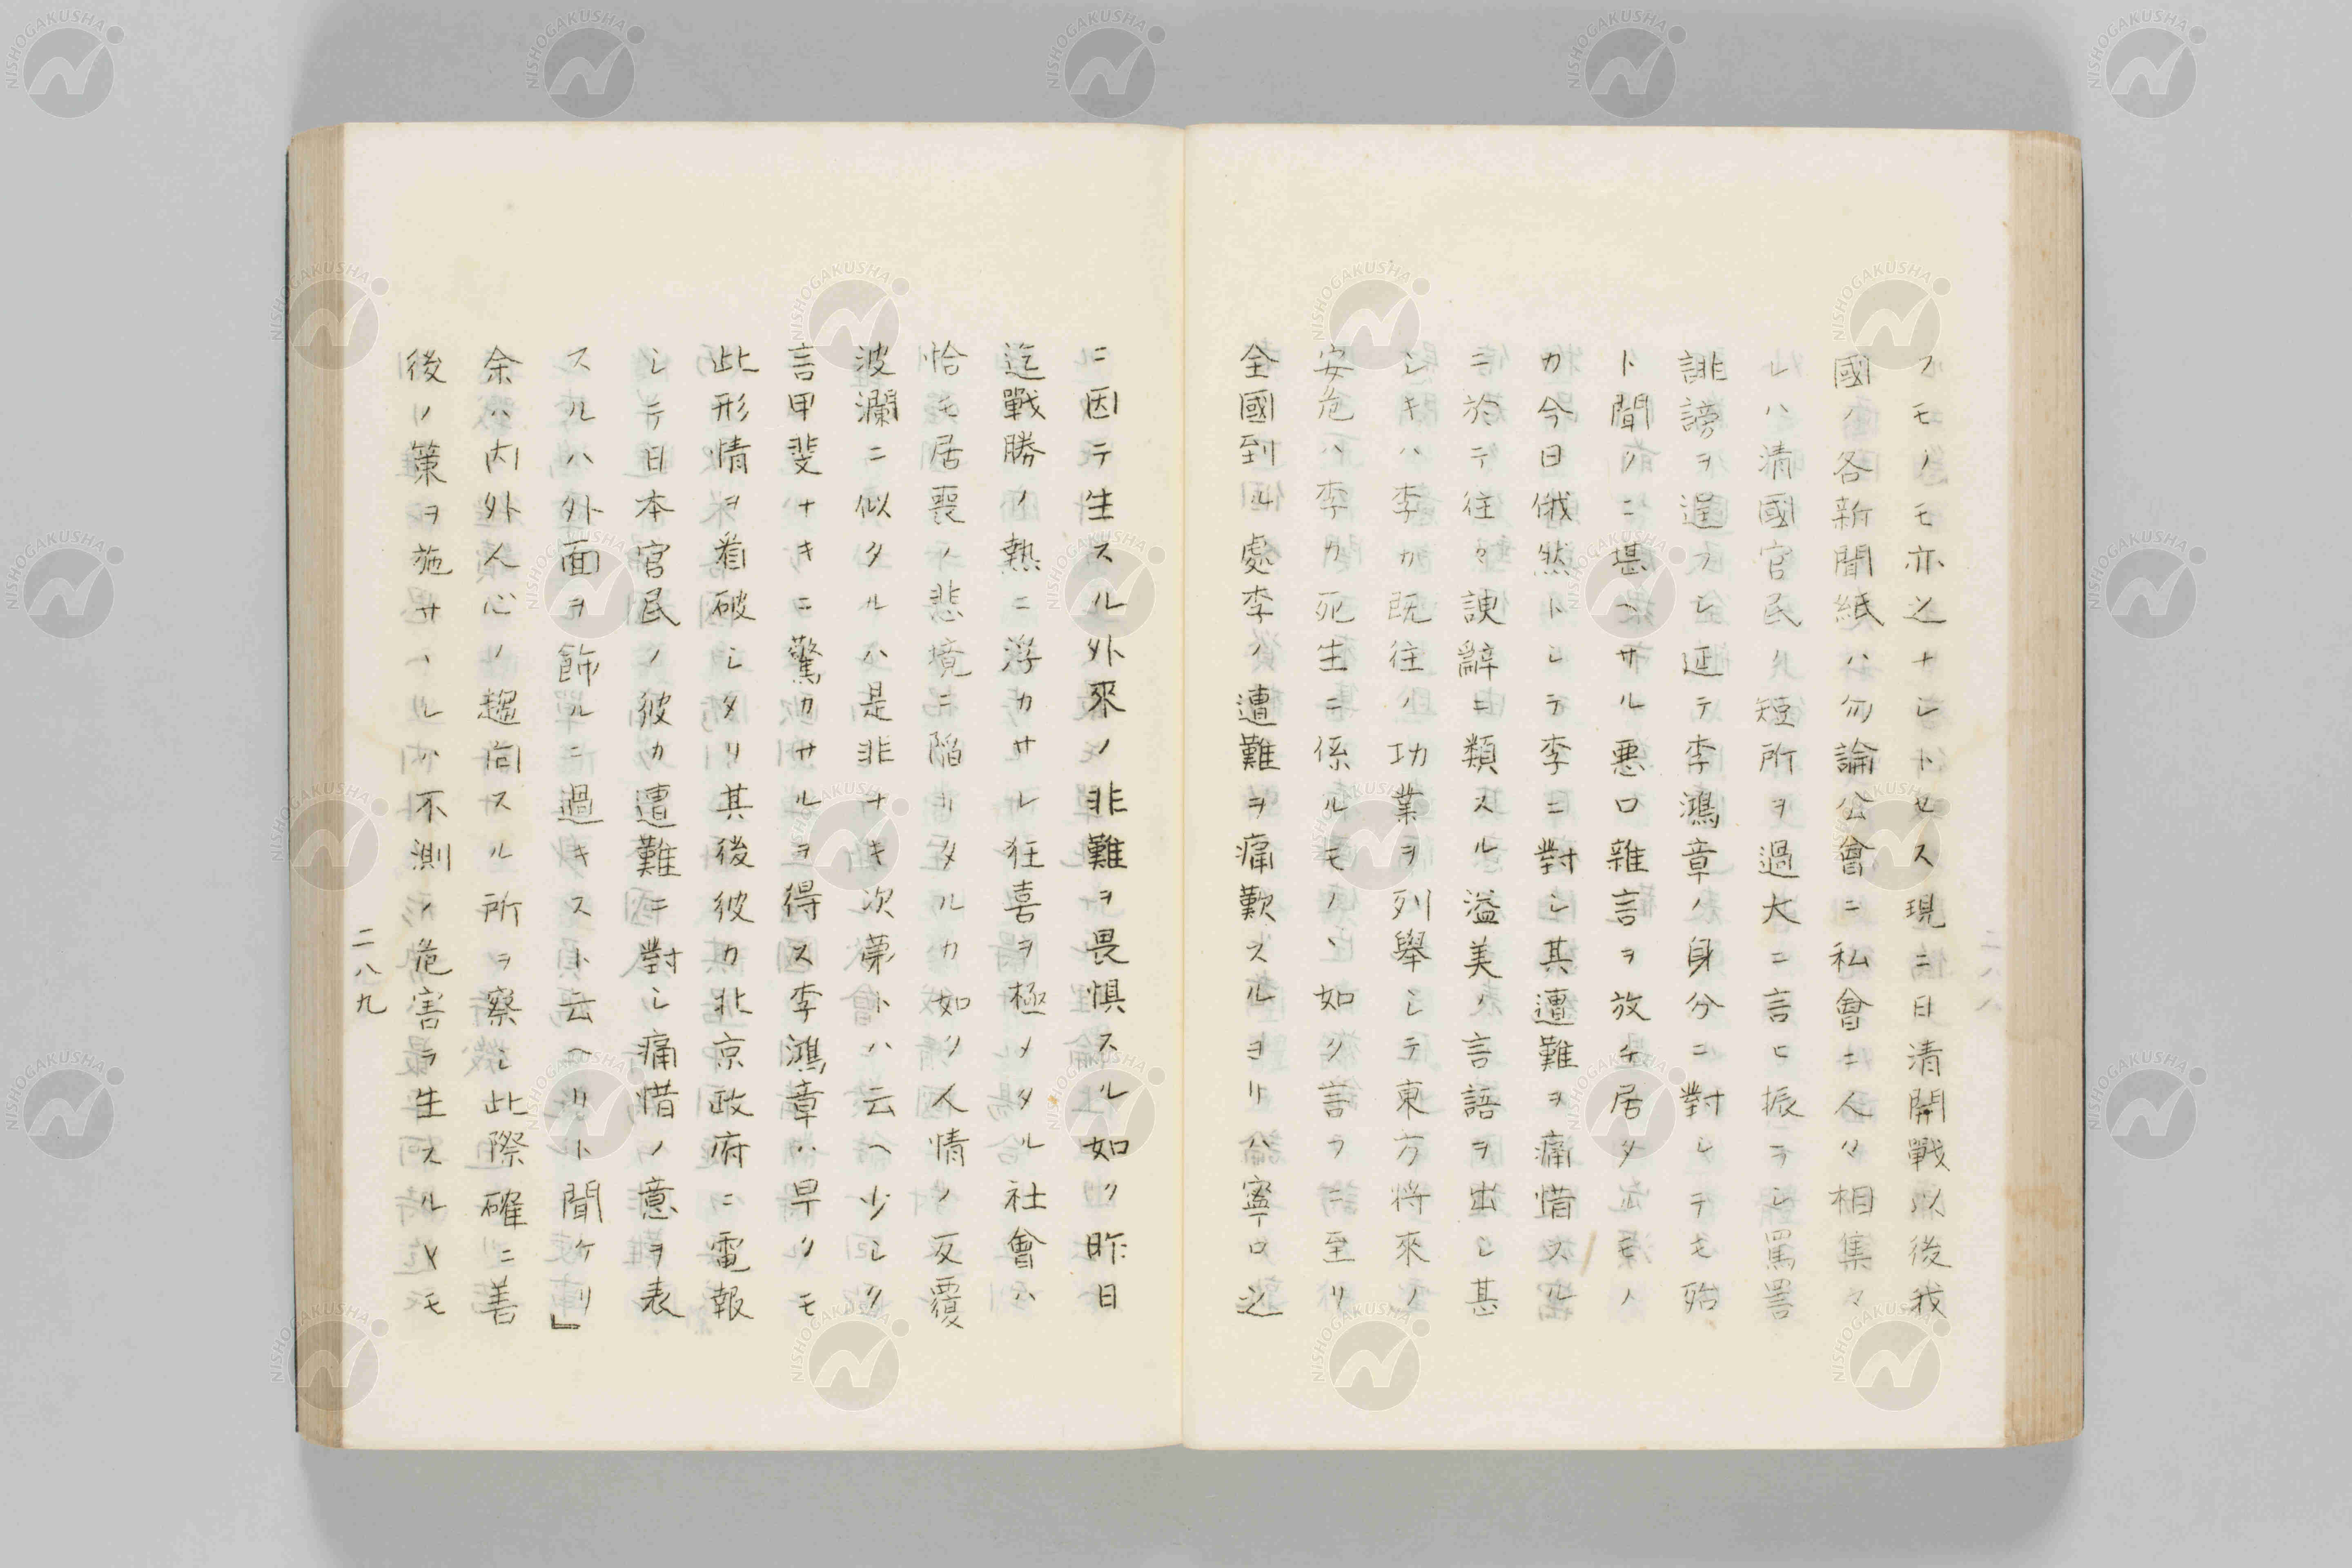 フモノモ亦之ナシトセス現ニ日清開戰以後我
國ノ各新聞紙ハ勿論公會ニ私會ニ人々相集マ
レハ清國官民ノ短所ヲ過大ニ言ヒ振ラシ罵詈
誹謗ヲ逞フシ延テ李鴻章ノ身分ニ對シテモ殆
ト聞クニ堪ヘサル悪口雜言ヲ放チ居タルモノ
カ今日俄然トシテ李ニ對シ其遭難ヲ痛惜スル
ニ於テ往々諛辭ニ類スル溢美ノ言語ヲ出シ甚
シキハ李カ既往ノ功業ヲ列舉シテ東方將來ノ
安危ハ李カ死生ニ係ルモノヽ如ク言フニ至リ
全國到ル處李ノ遭難ヲ痛歎スルヨリハ寧ロ之
ニ因テ生スル外來ノ非難ヲ畏惧スル如ク昨日
迄戰勝ノ熱ニ浮カサレ狂喜ヲ極メタル社會ハ
恰モ居喪ノ悲境ニ陥リタルカ如ク人情ノ反覆
波瀾ニ似タルハ是非ナキ次第トハ云ヘ少シク
言甲斐ナキニ驚カサルヲ得ス李鴻章ハ早クモ
此形情ヲ看破シタリ其後彼カ北京政府ニ電報
シテ日本官民ノ彼カ遭難ニ對シ痛惜ノ意ヲ表
スルハ外面ヲ飾ルニ過キスト云ヘリト聞ケリ」
余ハ内外人心ノ趨向スル所ヲ察シ此際確ニ善
後ノ策ヲ施サヽルハ不測ノ危害ヲ生スルヤモ
二八九